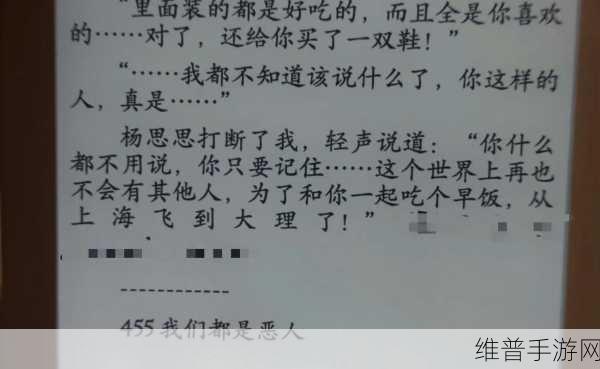 “里面装的都是好吃的，而且全是你喜欢
的……对了，还给你买了一双鞋！”
“……我都不知道该说什么了，你这样的
人，真是……”
杨思思打断了我，轻声说道：“你什么
都不用说，你只要记住……这个世界上再也
不会有其他人，为了和你一起吃个早饭，从
上海飞到大理了！”
------------
455我们都是恶人
维普手游网